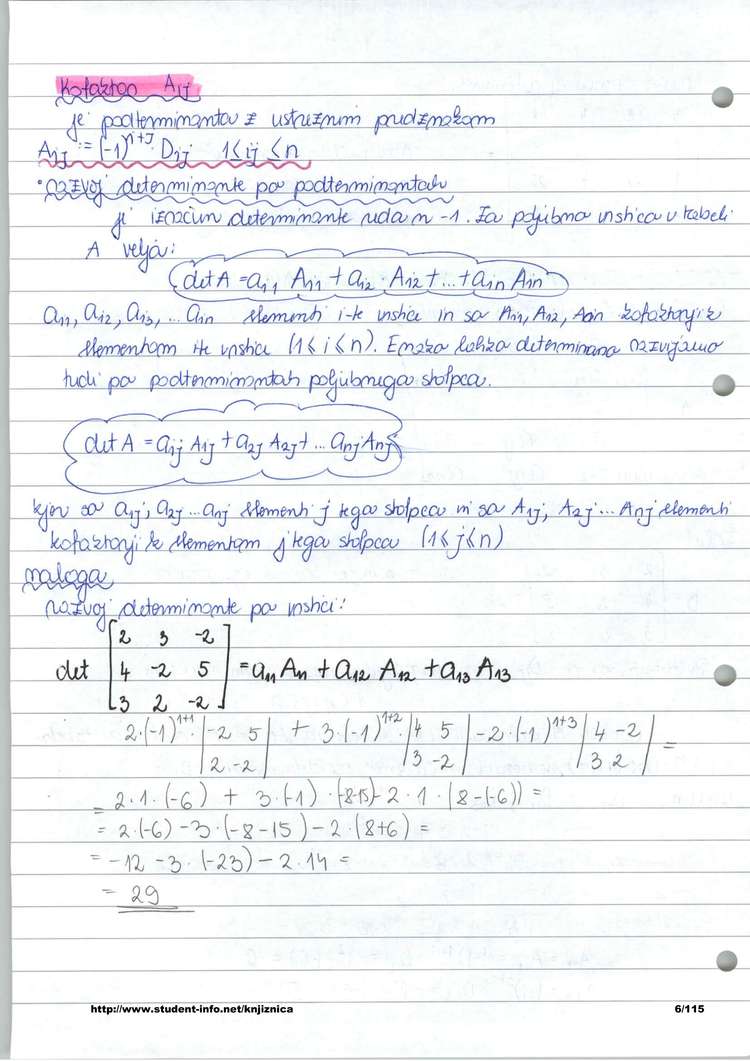 Kofaktor Aij
je poddeterminanta z ustreznim predznakom
Aij := (-1)^i+j · Dij 1 ≤ ij ≤ n
• razvoj determinante po poddeterminantah
je izračun determinante reda n -1. Za poljubno vrstico v tabeli
A velja:
det A = ai1 Ai1 + ai2 · Ai2 + ... + ain Ain
ai1, ai2, ai3, ... ain elementi i-te vrstice in so Ai1, Ai2, Ain kofaktorji k
elementom i-te vrstice (1 ≤ i ≤ n). Enako lahko determinanto razvijamo
tudi po poddeterminantah poljubnega stolpca.
det A = a1j A1j + a2j A2j + ... anj Anj
kjer so a1j, a2j ... anj elementi j tega stolpca in so A1j, A2j ... Anj elementi
kofaktorji k elementom j tega stolpca (1 ≤ j ≤ n)
naloga
razvoj determinante po vrstici:
2 3 -2
det 4 -2 5 = a11 A11 + a12 A12 + a13 A13
3 2 -2
2·(-1)^1+1 · |-2 5| + 3·(-1)^1+2 · |4 5| -2·(-1)^1+3 |4 -2| =
|2 -2| |3 -2| |3 2|
= 2·1·(-6) + 3·(-1)·(-8-15)-2·1·(8-(-6)) =
= 2·(-6) -3·(-8-15) -2·(8+6) =
= -12 -3·(-23) -2·14 =
= 29
http://www.student-info.net/knjiznica 6/115